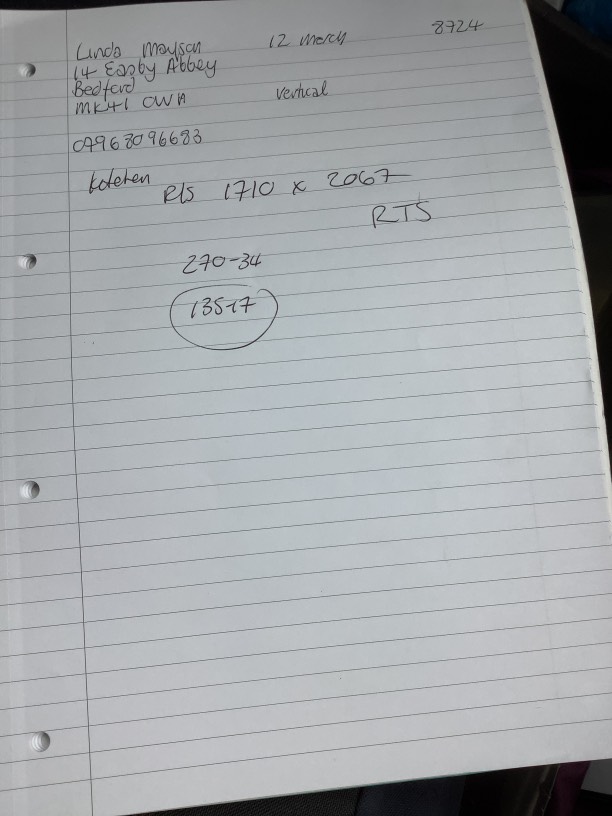 Linda Mayson 12 March 8724
14 Easby Abbey
Bedford
MK41 0WA Vertical
07968096683
Kitchen
R/S 1710 x 2067
RTS
270-34
135-17